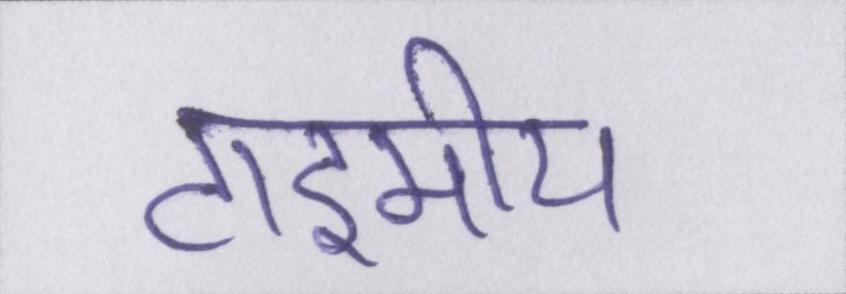 टाइमीय